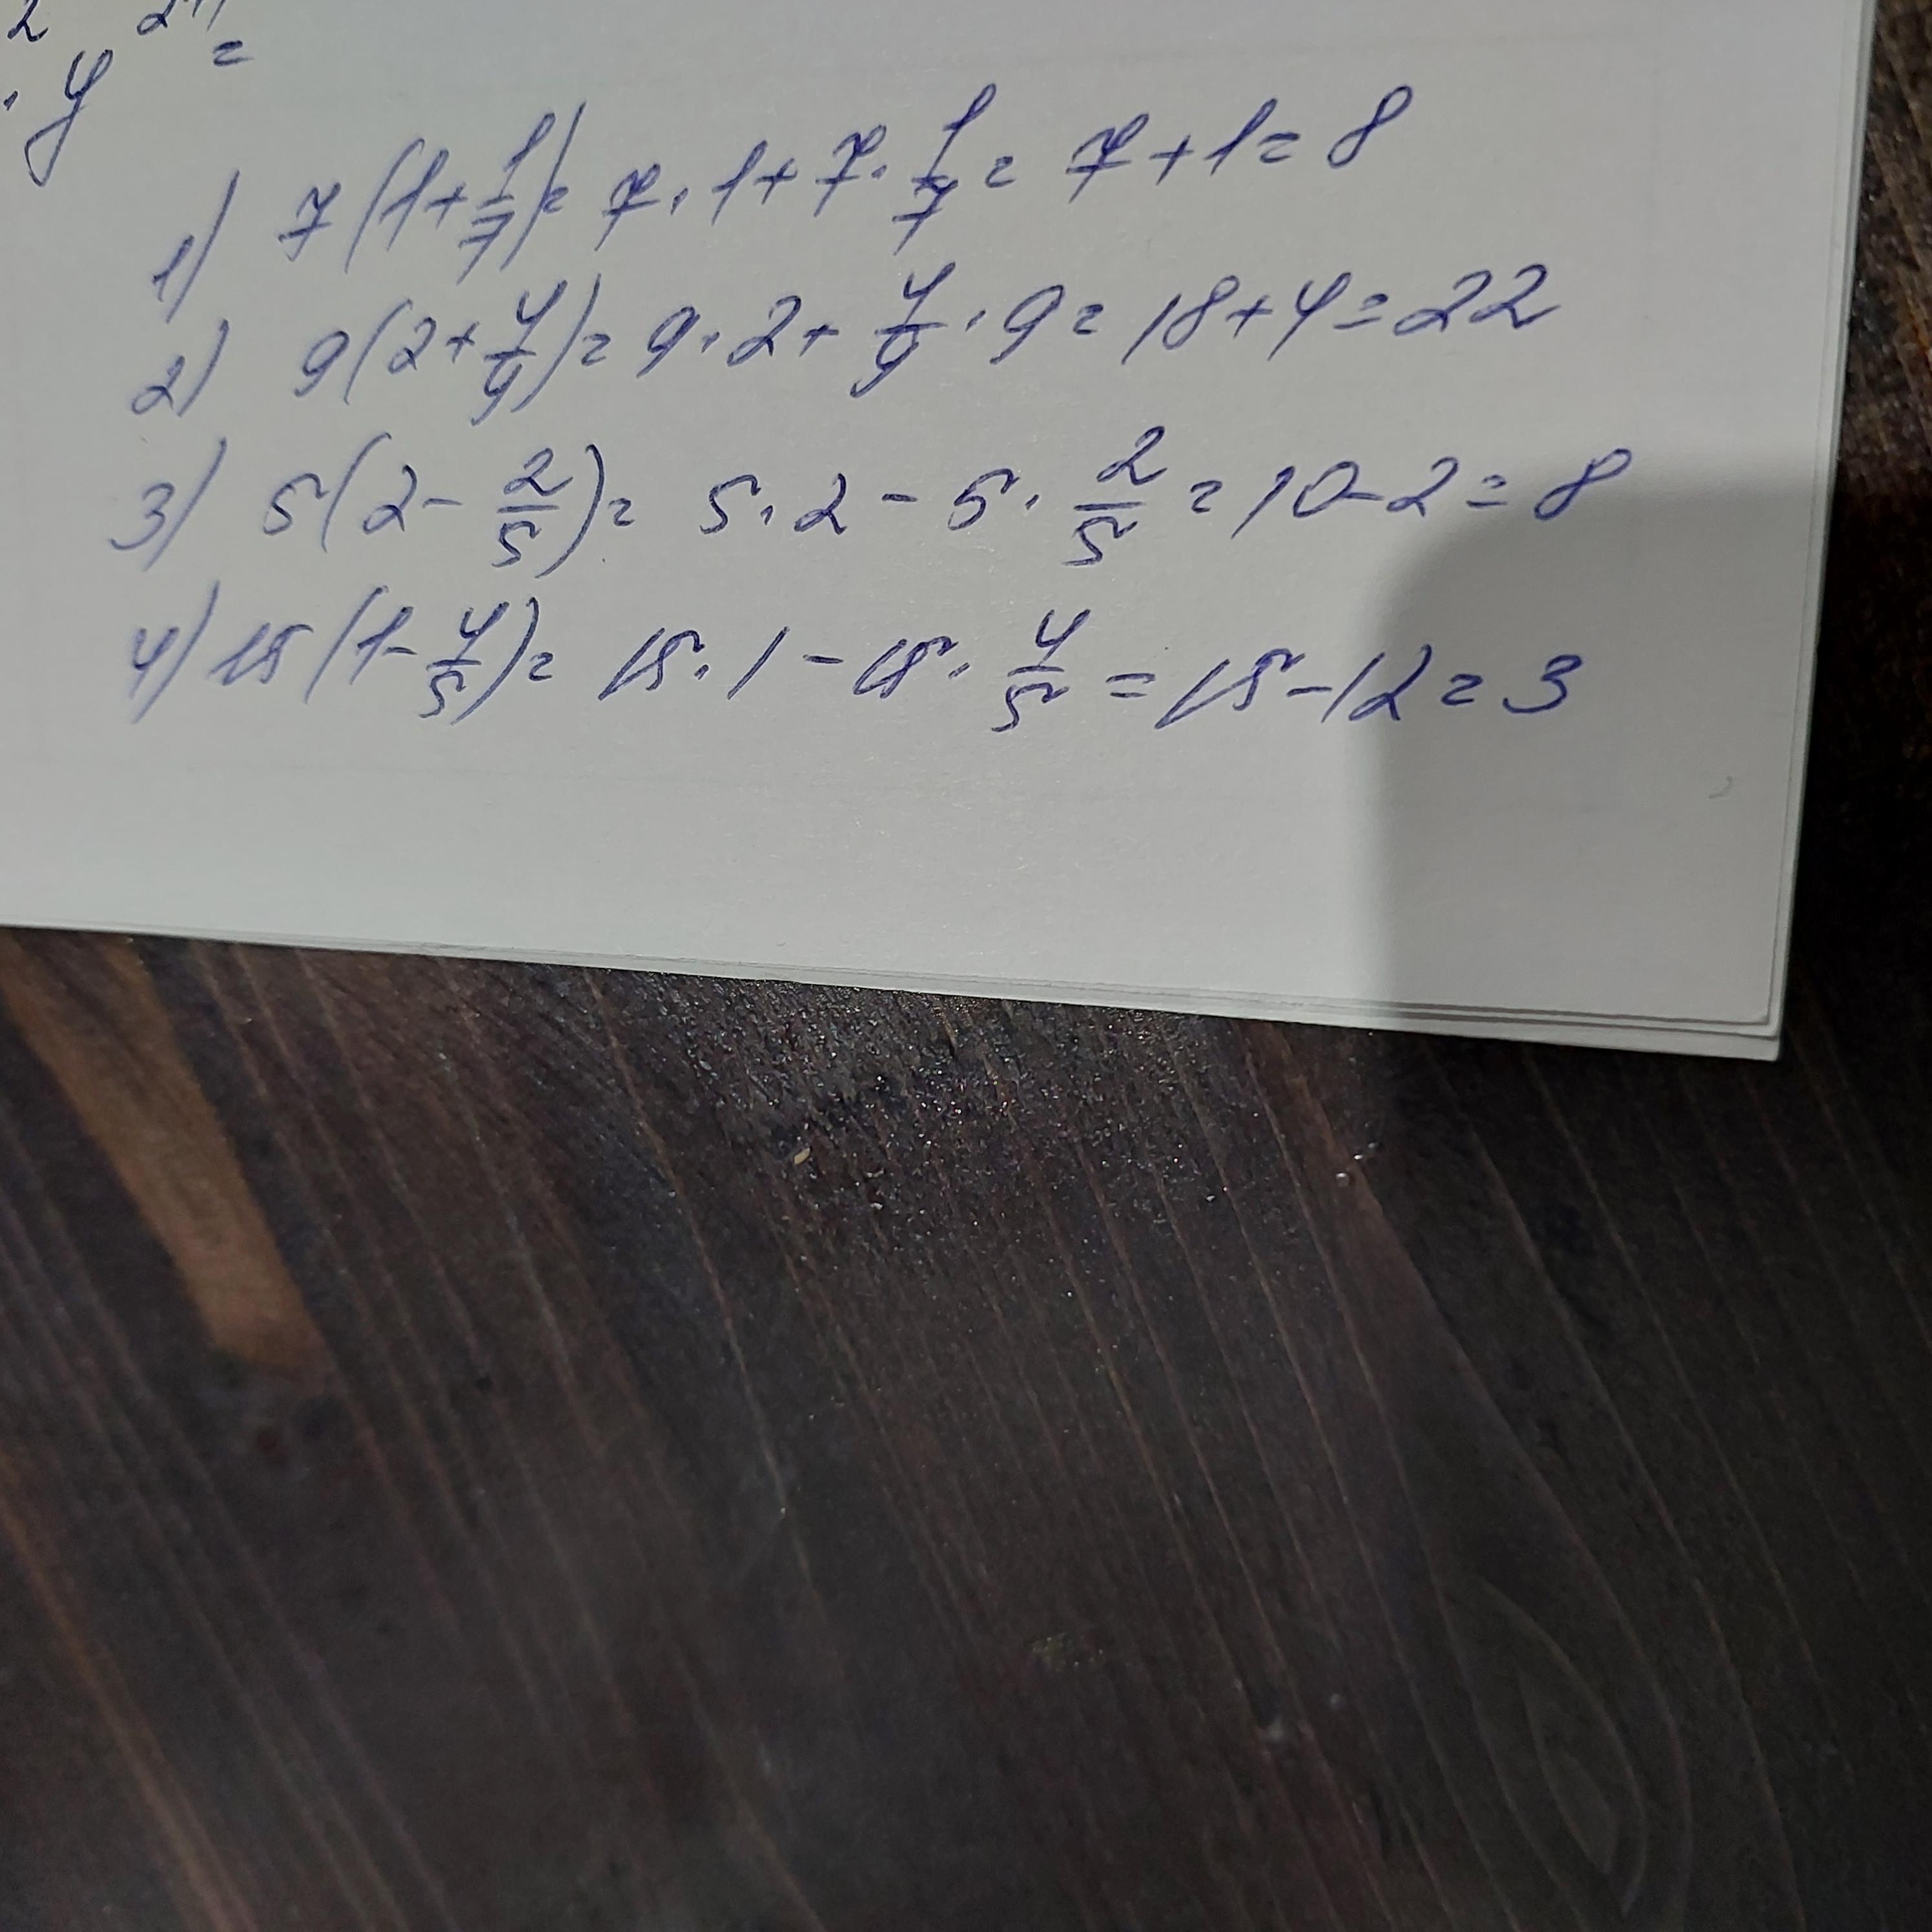 2 2
· y =
1) 7(1+1/7)= 7·1+7·1/7= 7+1=8
2) 9(2+4/9)= 9·2+4/9·9= 18+4=22
3) 5(2-2/5)= 5·2-5·2/5=10-2=8
4) 15(1-4/5)= 15·1-15·4/5=15-12=3